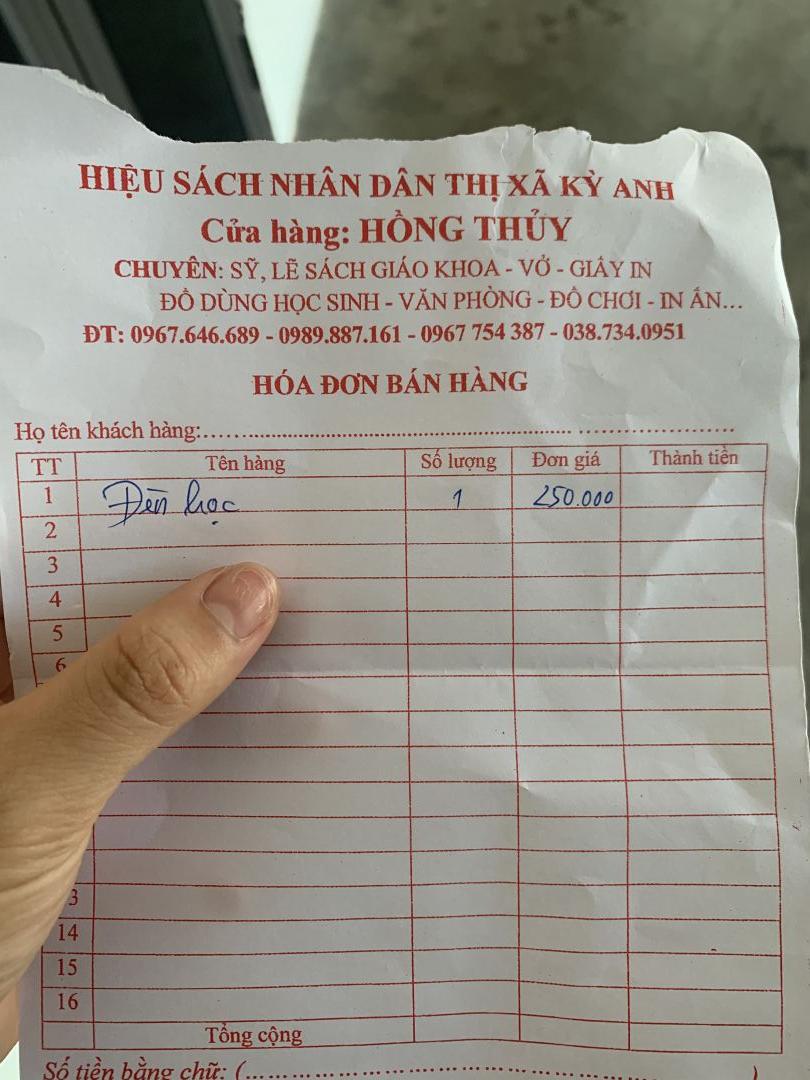 HIỆU SÁCH NHÂN DÂN THỊ XÃ KỲ ANH
Cửa hàng: HỒNG THỦY
CHUYÊN: SỸ, LẼ SÁCH GIÁO KHOA - VỞ - GIẤY IN
ĐỒ DÙNG HỌC SINH - VĂN PHÒNG - ĐỒ CHƠI - IN ẤN...
ĐT: 0967.646.689 - 0989.887.161 - 0967 754 387 - 038.734.0951
HÓA ĐƠN BÁN HÀNG
Họ tên khách hàng:
TT Tên hàng Số lượng Đơn giá Thành tiền
1 Đèn học 1 250.000
2
3
4
5
6
3
14
15
16
Tổng cộng
Số tiền bằng chữ: (......)